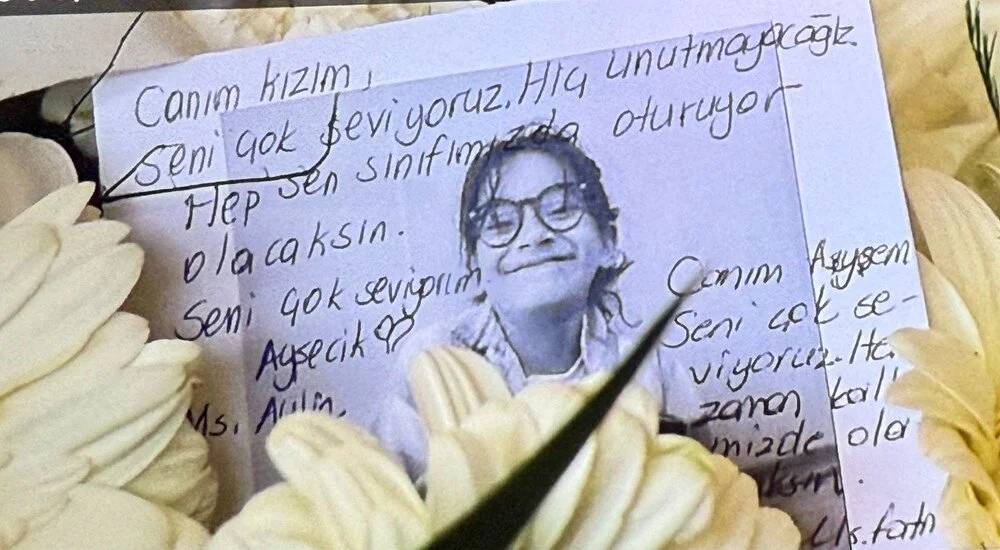 Canım kızım,
Seni çok seviyoruz. Hiç unutmayacağız.
Hep sen sınıfımızda oturuyor
olacaksın.
Seni çok seviyorum
Ayşecik
Ms. Aylin.
Canım Ayşem
Seni çok se-
viyoruz. He
zaman kal
mizde ola
ksın.